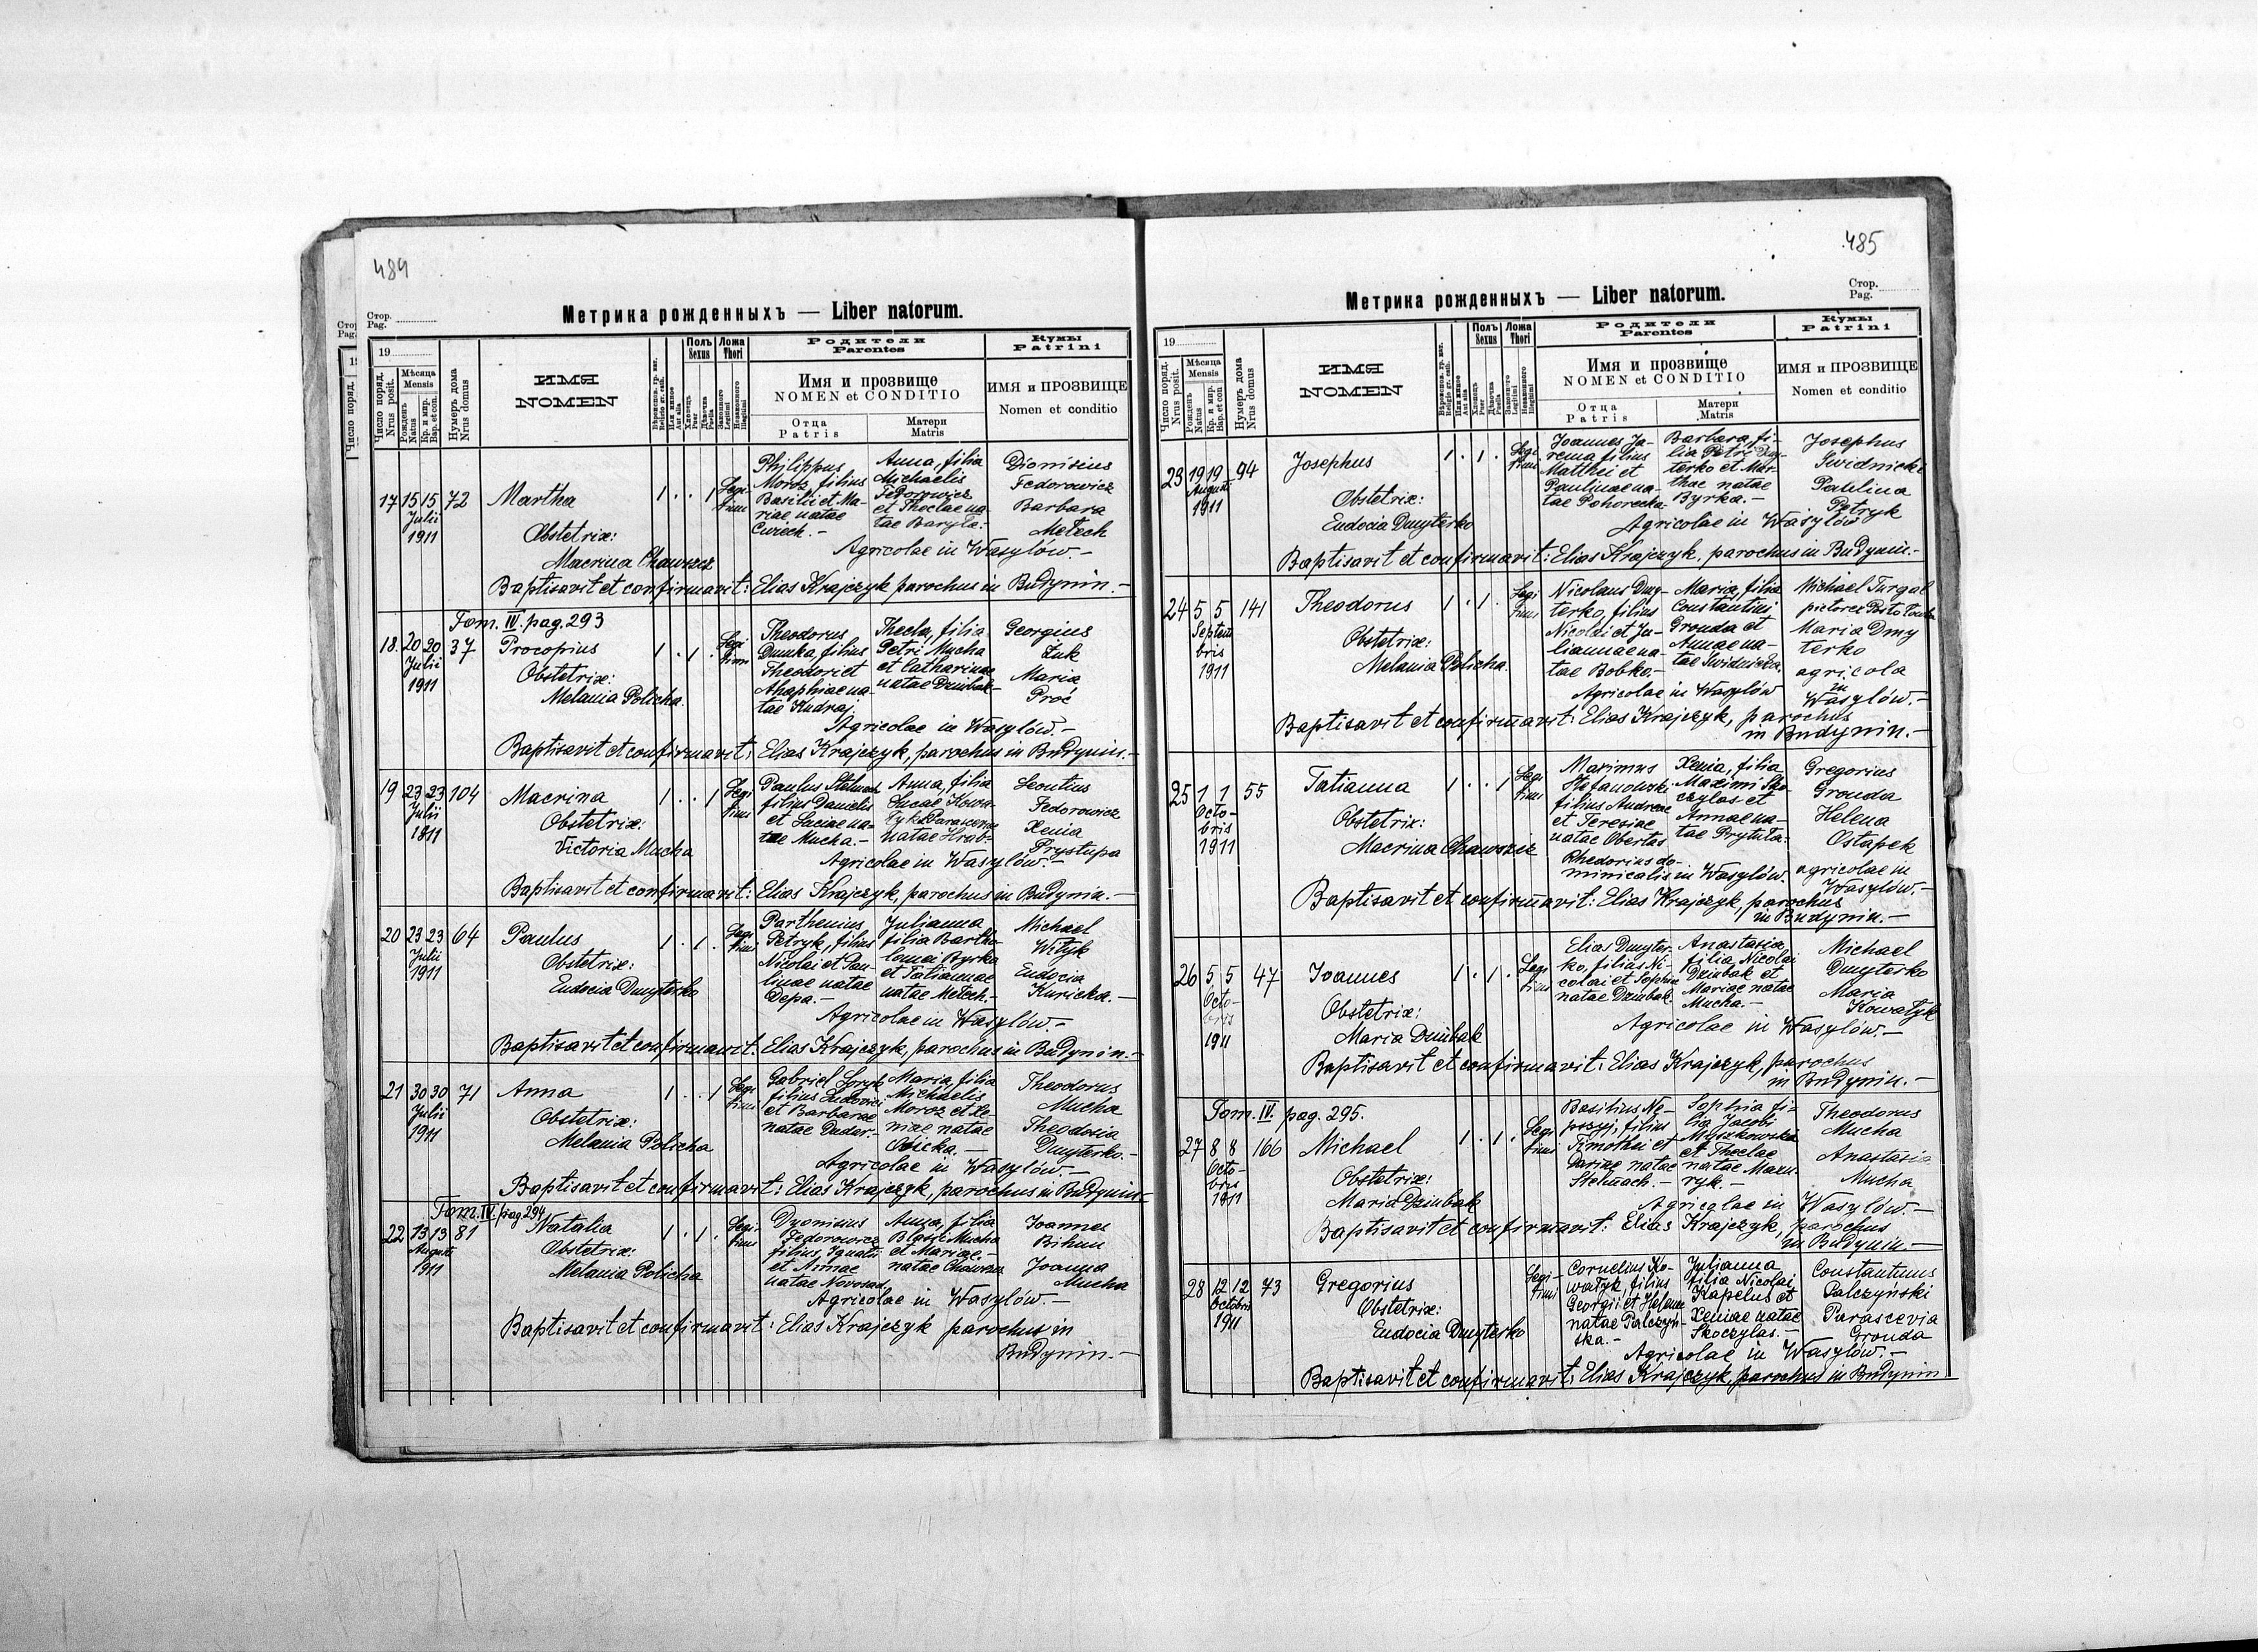 484
Стор.
Pag.
Метрика рожденныхъ — Liber natorum.
19
Число поряд.
Nrus posit.
Мѣсяца
Mensis
Рожденъ
Natus
Кр. и мир.
Bap. et con.
Нумеръ дома
Nrus domus
ИМЯ
NOMEN
Полъ
Sexus
Ложа
Thori
Родители
Parentes
Кумы
Patrini
Имя и прозвище
NOMEN et CONDITIO
ИМЯ и ПРОЗВИЩЕ
Nomen et conditio
Отца
Patris
Матери
Matris
17 15 15 72 Martha 1 . . 1 Legi-
timi
Julii
1911
Obstetrix:
Macrina Chawszcz
Philippus
Moroz, filius
Basilii et Ma-
riae natae
Cwiech.-
Anna, filia
Michaelis
Fedorowicz
et Theclae na-
tae Baryła.
Dionisius
Fedorowicz
Barbara
Metech
Agricolae in Wasylów.-
Baptisavit et confirmavit: Elias Krajczyk parochus in Budynin.-
Tom. IV. pag. 293
18. 20 20 37 Procopius 1 . 1 . Legi
timi
Julii
1911
Obstetrix:
Melania Policha
Theodorus
Dumka, filius
Theodori et
Ahaphiae na-
tae Kudraj.
Thecla, filia
Petri Mucha
et Catharinae
natae Dziubak-
Georgius
Żuk
Maria
Proć
Agricolae in Wasylów.-
Baptisavit et confirmavit: Elias Krajczyk, parochus in Budynin.-
19 23 23 104 Macrina 1 . . 1 Legi
timi
Julii
1911
Obstetrix:
Victoria Mucha
Paulus Stelmach
filius Danielis
et Luciae na-
tae Mucha.-
Anna, filia
Lucae Kowa-
natae Hrab-
Leontius
Fedorowicz
Xenia
Prystupa
Agricolae in Wasylów.-
Baptisavit et confirmavit: Elias Krajczyk, parochus in Budynin.-
20 23 23 64 Paulus 1 . 1 . Legi
timi
Julii
1911
Obstetrix:
Eudocia Dmyterko
Parthenius
Petryk, filius
Nicolai et Pau-
linae natae
Depa.-
Julianna
filia Bartho-
lomei Byrka
et Tatiannae
natae Metech.-
Michael
Wityk
Eudocia
Kuricka.-
Agricolae in Wasylów.-
Baptisavit et confirmavit: Elias Krajczyk, parochus in Budynin.-
21 30 30 71 Anna 1 . . 1 Legi
timi
Julii
1911
Obstetrix:
Melania Policha
Gabriel
filius Ludovici
et Barbarae
natae Dudar.-
Maria, filia
Michaelis
Moroz et Xe-
niae natae
Theodorus
Mucha
Theodosia
Dmyterko.-
Agricolae in Wasylów.-
Baptisavit et confirmavit: Elias Krajczyk, parochus in Budynin-
Tom. IV. pag 294
22 13 13 81 Natalia 1 . 1 . Legi-
timi
Augusti
1911
Obstetrix:
Melania Policha
Dyonisius
Fedorowicz
filius, Ignatii
et Annae
natae Novosad.
Anna, filia
Blasii Mucha
et Mariae.-
natae Chawszcz
Joannes
Bihun
Joanna
Mucha
Agricolae in Wasylów.-
Baptisavit et confirmavit: Elias Krajczyk parochus in
Budynin.-
485
Стор.
Pag.
Метрика рожденныхъ — Liber natorum.
19
Число поряд.
Nrus posit.
Мѣсяца
Mensis
Рожденъ
Natus
Кр. и мир.
Bap. et con
Нумеръ дома
Nrus domus
ИМЯ
NOMEN
Полъ
Sexus
Ложа
Thori
Родители
Parentes
Кумы
Patrini
Имя и прозвище
NOMEN et CONDITIO
ИМЯ и ПРОЗВИЩЕ
Nomen et conditio
Отца
Patris
Матери
Matris
23 19 19 94 Josephus 1 . 1 . Legi
timi
Augusti
1911
Obstetrix:
Eudocia Dmyterko
Joannes Ja-
rema filius
Matthei et
Paulinae na-
tae Pohorecka.
Barbara, fi-
lia Petri Dmy-
terko et Mar-
thae natae
Byrka.-
Josephus
Swidnicki
Paulina
Petryk
Agricolae in Wasylów
Baptisavit et confirmavit: Elias Krajczyk, parochus in Budynin.-
24 5 5 141 Theodorus 1 . 1 . Legi
timi
Septem
bris
1911
Obstetrix:
Melania Policha
Nicolaus Dmy-
terko, filius
Nicolai et Ju-
liannae na-
tae Bobko.-
Maria, filia
Constantini
Gronda et
Annae na-
tae Swidnicka.
Michael Turgal
Maria Dmy
terko
agricola
in
Wasylów.-
Agricolae in Wasylów
Baptisavit et confirmavit: Elias Krajczyk, parochus
in Budynin.-
25 1 1 55 Tatianna 1 . . 1 Legi
timi
Octo-
bris
1911
Obstetrix:
Macrina Chawszcz
Maximus
Stefanowski
filius Andreae
et Teresiae
natae Obertas
Xenia, filia
Maximi Sko-
czylas et
Annae na-
tae Prytuła.
Gregorius
Gronda
Helena
Ostapek
agricolae in
Wasylów.-
Rhedarius do-
minicalis in Wasylów.
Baptisavit et confirmavit: Elias Krajczyk, parochus
in Budynin.-
26 5 5 47 Joannes 1 . 1 . Legi
timi
Octo-
bris
1911
Obstetrix:
Maria Dziubak
Elias Dmyter-
ko, filius Ni-
colai et Sophiae
natae Dziubak.
Anastasia
filia Nicolai
Dziubak et
Mariae natae
Mucha.-
Michael
Dmyterko
Maria
Kowalyk
Agricolae in Wasylów.-
Baptisavit et confirmavit: Elias Krajczyk, parochus
in Budynin.-
Tom. IV. pag. 295.
27 8 8 166 Michael 1 . 1 . Legi
timi
Octo-
bris
1911
Obstetrix:
Maria Dziubak
Basilius Ne-
filius
Timothei et
Dariae natae
Stelmach.-
Sophia fi-
lia Jacobi
Myszkowski
et Theclae
natae Mazu-
ryk.-
Theodorus
Mucha
Anastasia
Mucha
Agricolae in Wasylów.-
Baptisavit et confirmavit: Elias Krajczyk, parochus
in Budynin.-
28 12 12 73 Gregorius Legi-
timi
Octobris
1911
Obstetrix:
Eudocia Dmyterko
Cornelius Ko-
wałyk, filius
Georgii et Helenae
natae Palczyń-
ska.-
Julianna
filia Nicolai
Kapelus et
Xeniae natae
Skoczylas.-
Constantinus
Palczyński
Parascevia
Gronda
Agricolae in Wasylów.-
Baptisavit et confirmavit: Elias Krajczyk, parochus in Budynin